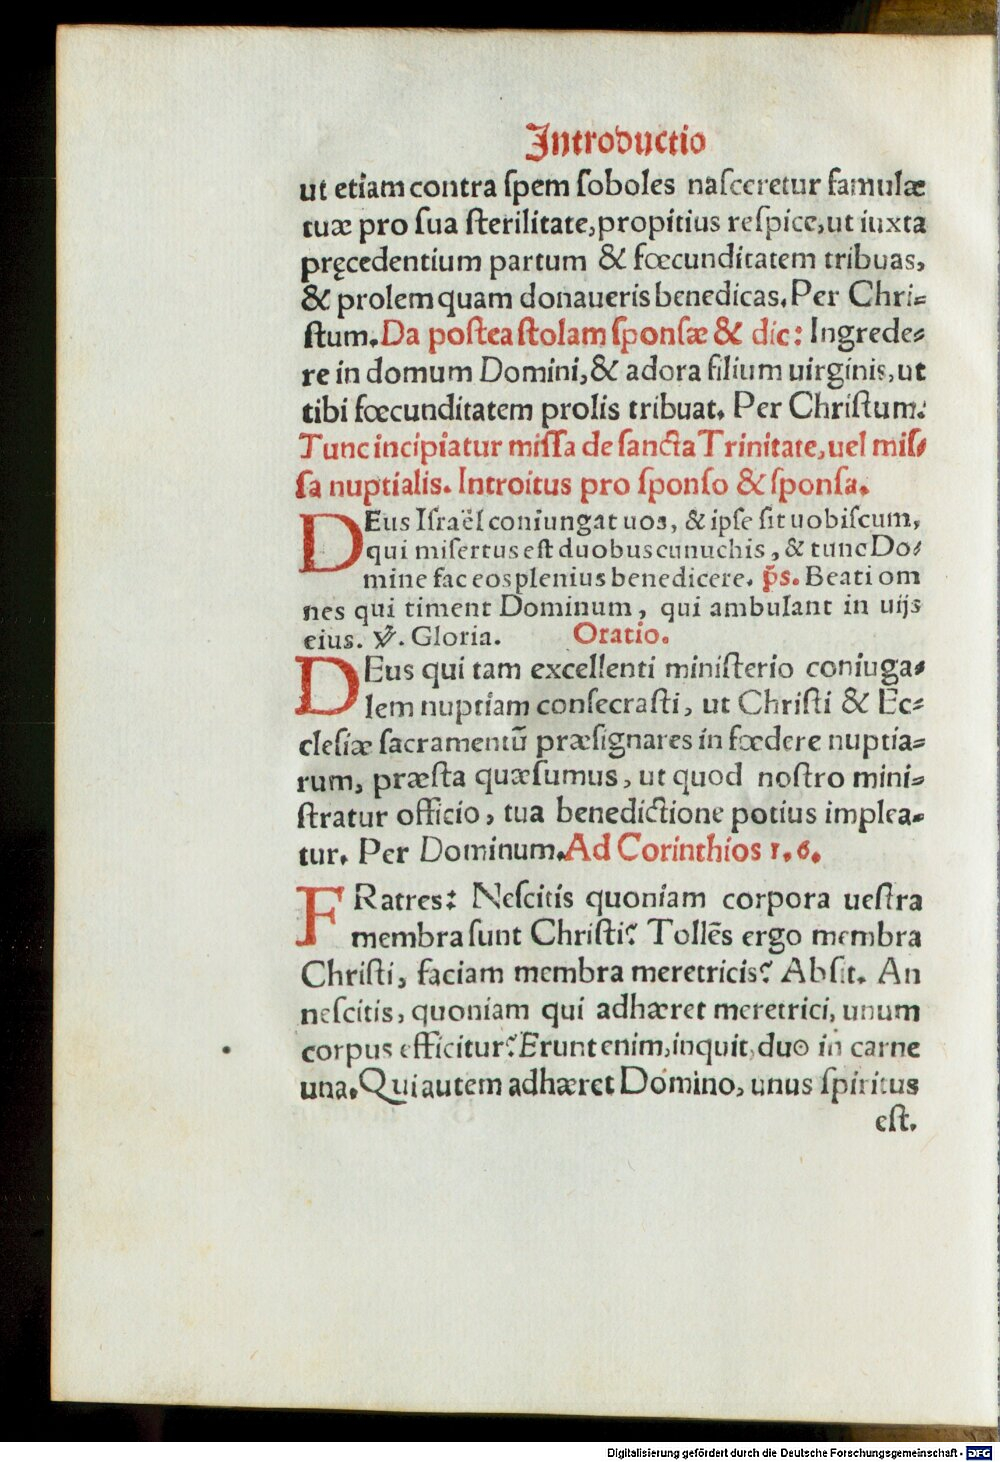 Introductio
ut etiam contra ſpem ſoboles naſceretur famulæ
tuæ pro ſua ſterilitate, propitius reſpice, ut iuxta
pręcedentium partum & fœcunditatem tribuas,
& prolem quam donaueris benedicas. Per Chri-
ſtum. Da poſtea ſtolam ſponſæ & dic: Ingrede-
re in domum Domini, & adora filium uirginis, ut
tibi fœcunditatem prolis tribuat. Per Chriſtum.
Tunc incipiatur miſſa de ſancta Trinitate, uel miſ-
ſa nuptialis. Introitus pro ſponſo & ſponſa.
DEus Iſraël coniungat uos, & ipſe ſit uobiſcum,
qui miſertus eſt duobus cunuchis, & tunc Do-
mine fac eos plenius benedicere. p̃s. Beati om
nes qui timent Dominum, qui ambulant in uijs
eius. ℣. Gloria. Oratio.
DEus qui tam excellenti miniſterio coniuga-
lem nuptiam conſecraſti, ut Chriſti & Ec-
cleſiæ ſacramentũ præſignares in fœdere nuptia-
rum, præſta quæſumus, ut quod noſtro mini-
ſtratur officio, tua benedictione potius implea-
tur. Per Dominum. Ad Corinthios 1. 6.
FRatres: Neſcitis quoniam corpora ueſtra
membra ſunt Chriſti? Tollẽs ergo membra
Chriſti, faciam membra meretricis? Abſit. An
neſcitis, quoniam qui adhæret meretrici, unum
corpus efficitur? Erunt enim, inquit, duo in carne
una. Qui autem adhæret Domino, unus ſpiritus
eſt.
Digitalisierung gefördert durch die Deutsche Forschungsgemeinschaft - DFG